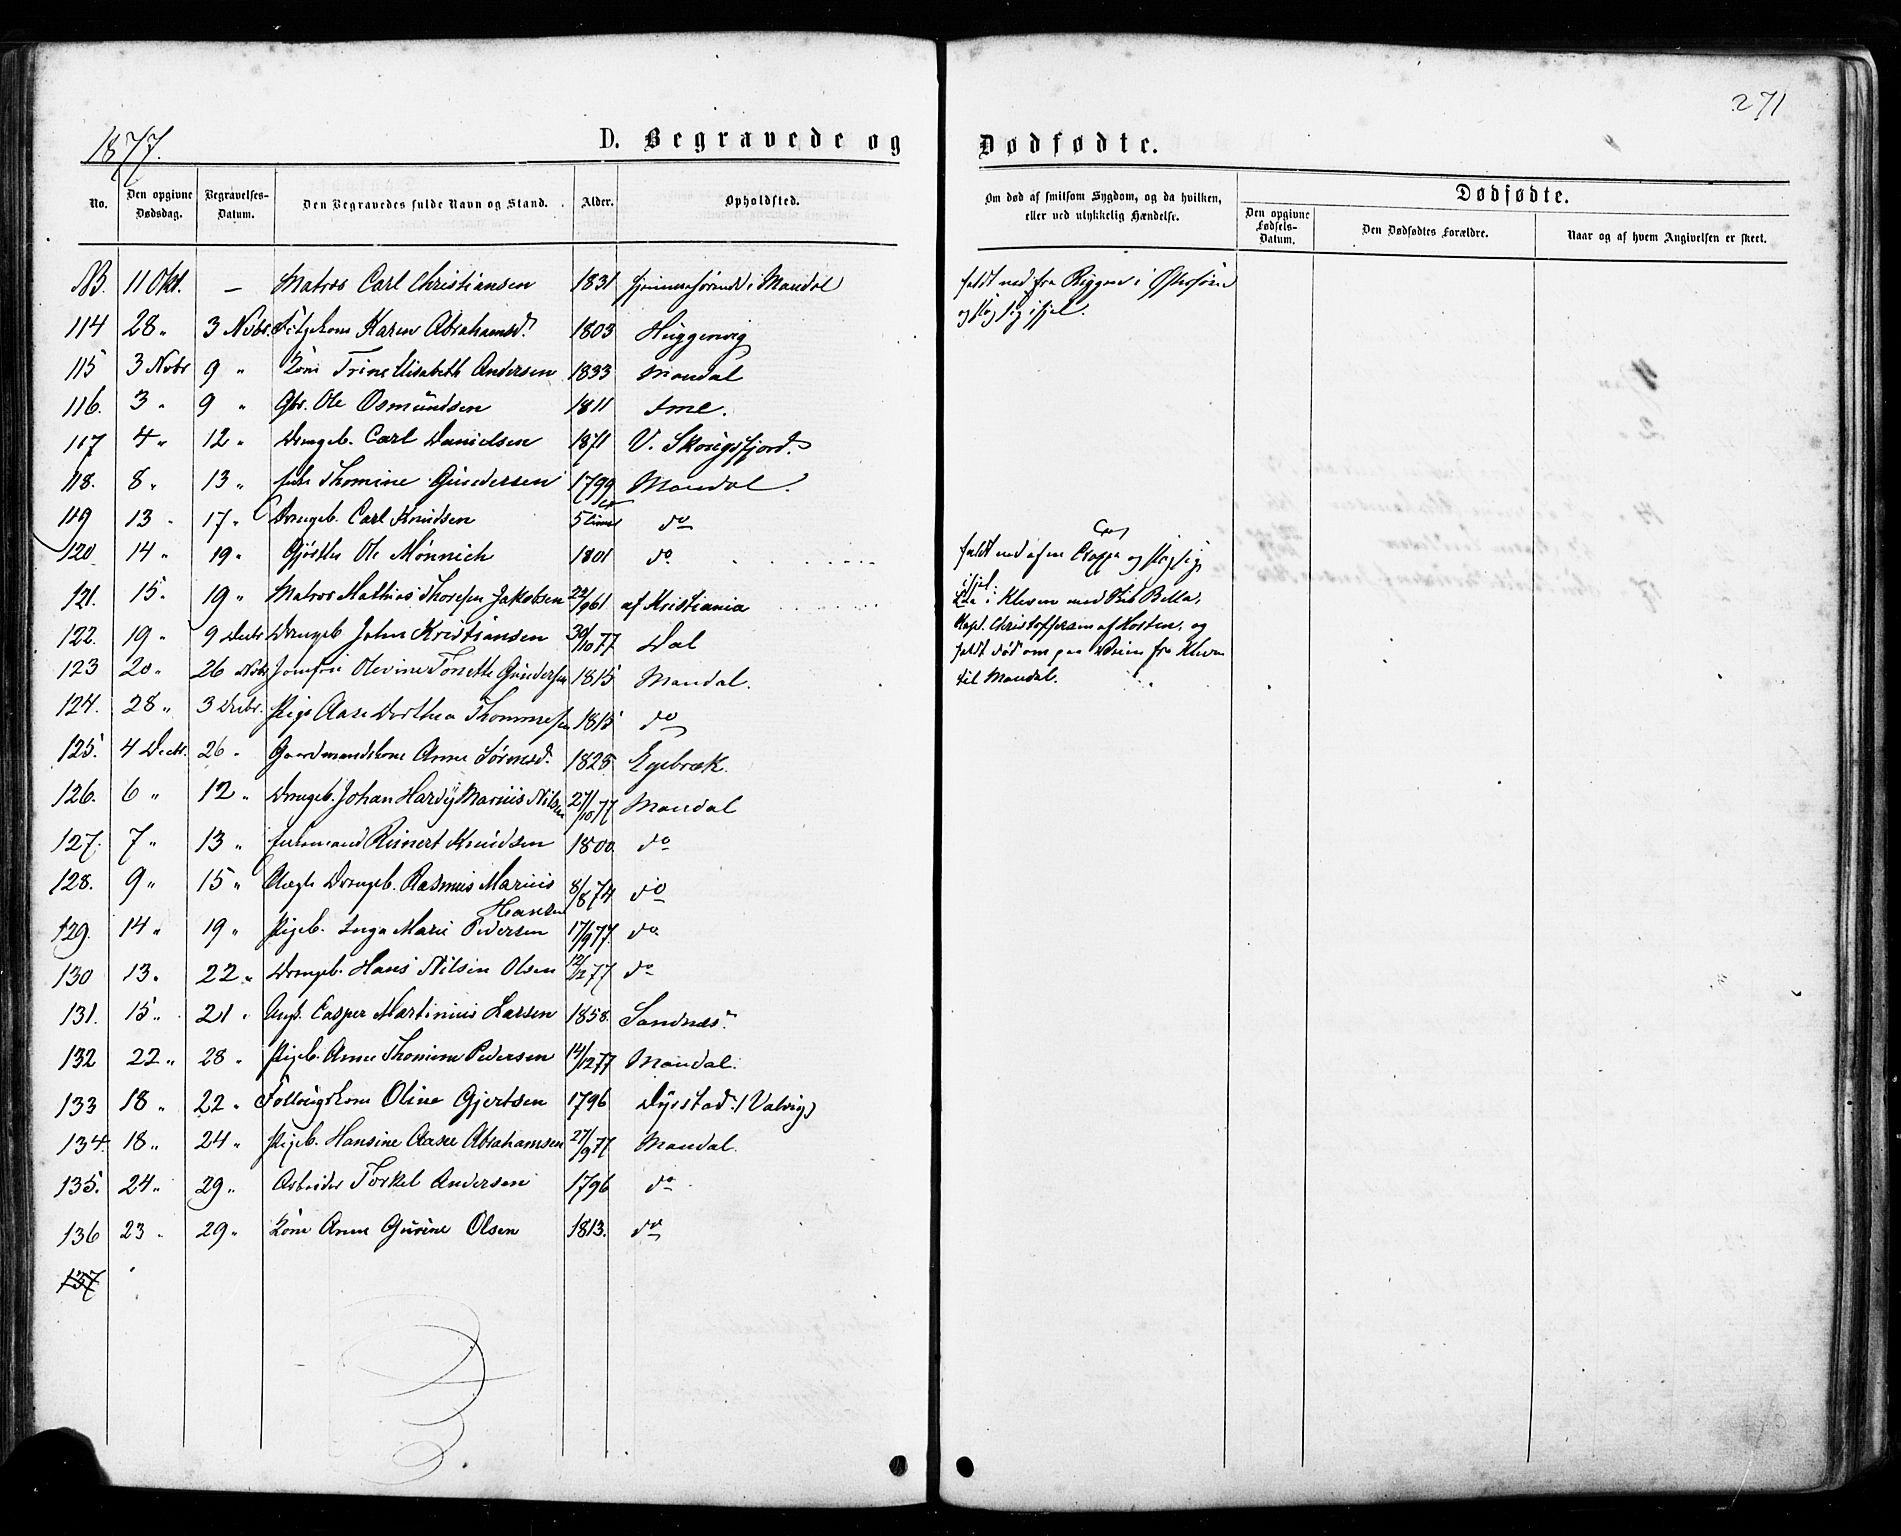 271
1877.
D. Begravede og Dødfødte.
No. Den opgivne Dødsdag. Begravelses-Datum. Den Begravedes fulde Navn og Stand. Alder. Opholdsted. Om død af smitsom Sygdom, og da hvilken, eller ved ulykkelig Hændelse. Dødfødte.
Den opgivne Fødsels-Datum. Den Dødfødtes Forældre. Naar og af hvem Angivelsen er skeet.
113. 11 Okt. — Matros Carl Christiansen 1831 hjemmehørende i Mandal faldt ned fra Riggen i Østersøen
og slog sig ihjel.
114 28 " 3 Novbr. Karen Abrahamsd. 1803 Huggenvig
115 3 Novbr 9 " Kone Trine Elisabeth Andersen 1833 Mandal
116. 3 " 9 " Gbr. Ole Osmundsen 1811 Ime.
117 4 " 12 " Drengeb. Carl Danielsen 1871 V. Skougsfjord.
118. 8 " 13 " Enke Thomine Gundersen 1799 Mandal.
119 13 " 17 " Drengeb. Carl Knudsen 5 Timer do
120 14 " 19 " Ole Mönnich 1801 do faldt ned af en Trappe og slog sig
ihjel.
121. 15 " 19 " Matros Mathias Thoresen Jakobsen 22/9 61 af Kristiania Laa i Kleven med Skib Bella,
Kapt. Christoffersen af Horten, og
faldt død om paa Veien fra Kleven
til Mandal.
122. 19 " 9 Decbr Drengeb John Kristiansen 30/10 77 Dal
123 20 " 26 Novbr Jomfru Olevine Tonette Gundersen 1815 Mandal.
124. 28 " 3 Decbr. Pige Aase Dorthea Thommesen 1815 do
125. 4 Decbr. 26 " Gaardmandskone Anne Sørensd. 1825 Egebræk.
126. 6 " 12 " Drengeb. Johan Hardy Marius Nilsen 27/10 77 Mandal
127. 7 " 13 " Enkemand Reinert Knudsen 1800 do
128. 9 " 15 " Uægte Drengeb. Rasmus Marius
Hansen 8/8 74 do
129. 14 " 19 " Pigeb. Inga Marie Pedersen 17/9 77. do
130 13 " 22 " Drengeb. Hans Nilsin Olsen 12/12 77 do
131. 15 " 21 " Ungk. Casper Martinius Larsen 1858. Sandnæs.
132 22 " 28 " Pigeb. Anne Thomine Pedersen 14/12 77 Mandal.
133 18 " 22 " Føllougskone Oline Gjertsen 1796 Dyrstad (Valvig)
134. 18 " 24 " Pigeb. Hansine Aasee Abrahamsen 27/9 77 Mandal.
135. 24 " 29 " Arbeider Torkel Andersen 1796 do
136 23 " 29 " Kone Anne Gurine Olsen 1813. do
137